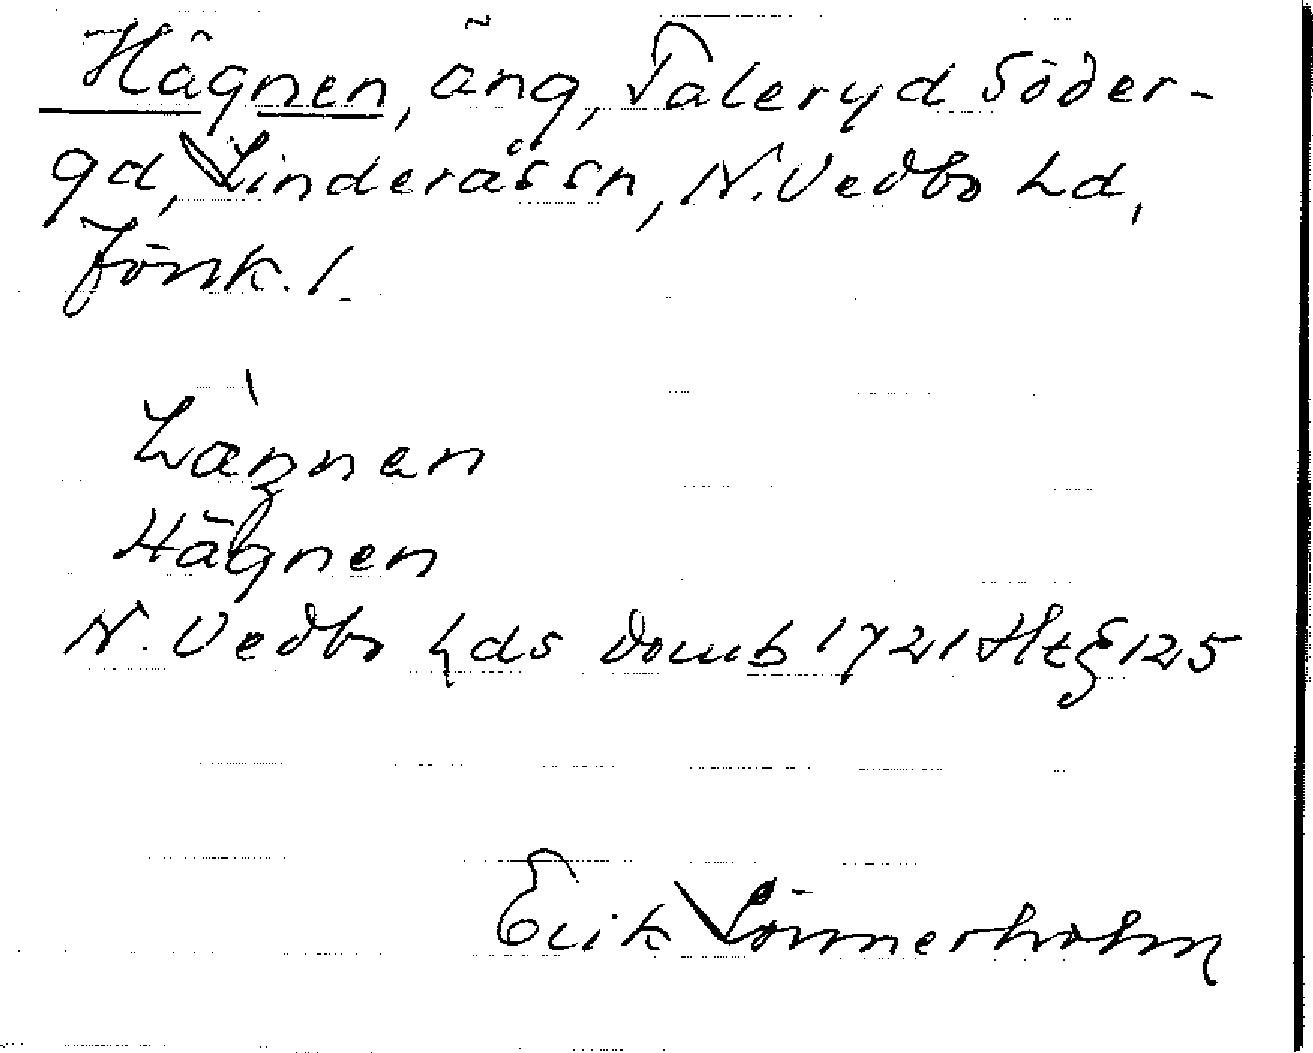 Hägnen, äng, Taleryd Söder-
gd, Linderås sn, N. Vedbo hd,
Jönk. l.
hägnen
Hägnen
N. Vedbo hds domb 1721 Ht § 125
Erik Lönnerholm